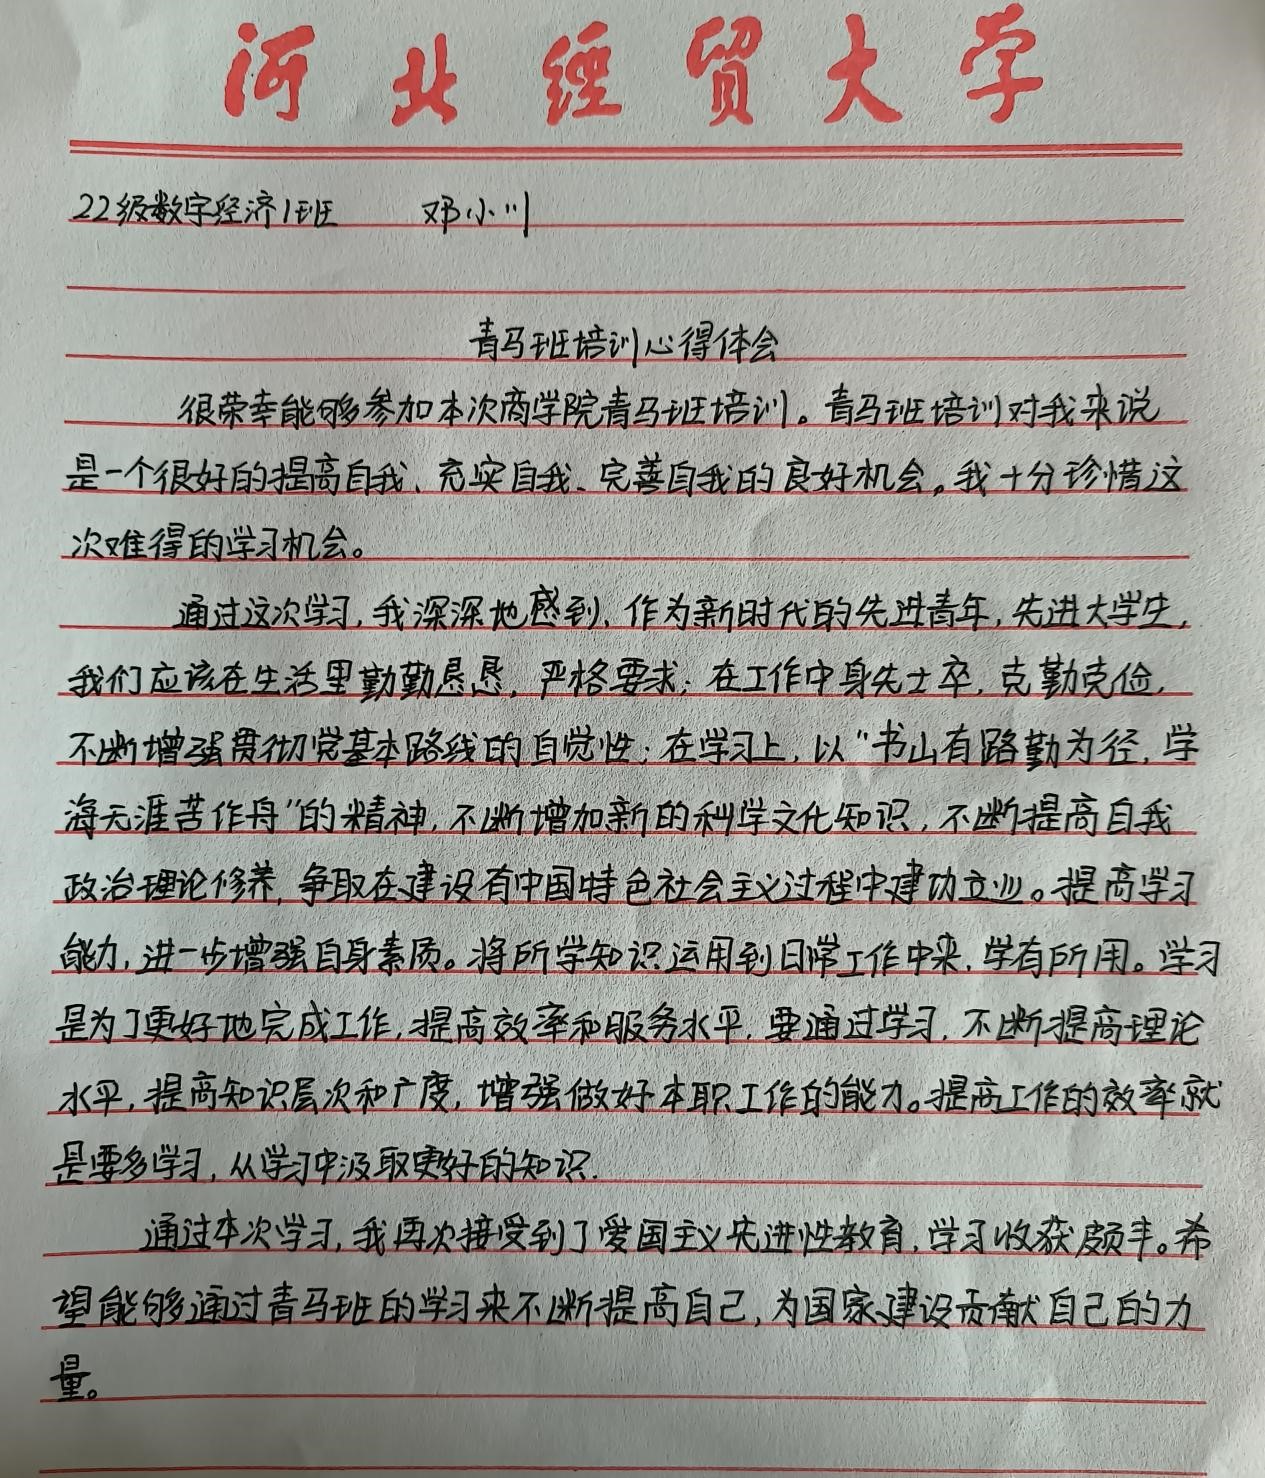 河北经贸大学
22级数字经济1班 邓小川
青马班培训心得体会
很荣幸能够参加本次商学院青马班培训。青马班培训对我来说
是一个很好的提高自我、充实自我、完善自我的良好机会。我十分珍惜这
次难得的学习机会。
通过这次学习,我深深地感到、作为新时代的先进青年,先进大学生,
我们应该在生活里勤勤恳恳,严格要求;在工作中身先士卒,克勤克俭,
不断增强贯彻党基本路线的自觉性;在学习上,以“书山有路勤为径,学
海无涯苦作舟”的精神,不断增加新的科学文化知识,不断提高自我
政治理论修养,争取在建设有中国特色社会主义过程中建功立业。提高学习
能力,进一步增强自身素质。将所学知识运用到日常工作中来,学有所用。学习
是为了更好地完成工作,提高效率和服务水平,要通过学习,不断提高理论
水平,提高知识层次和广度,增强做好本职工作的能力。提高工作的效率就
是要多学习,从学习中汲取更好的知识.
通过本次学习,我再次接受到了爱国主义先进性教育,学习收获颇丰。希
望能够通过青马班的学习来不断提高自己,为国家建设贡献自己的力
量。